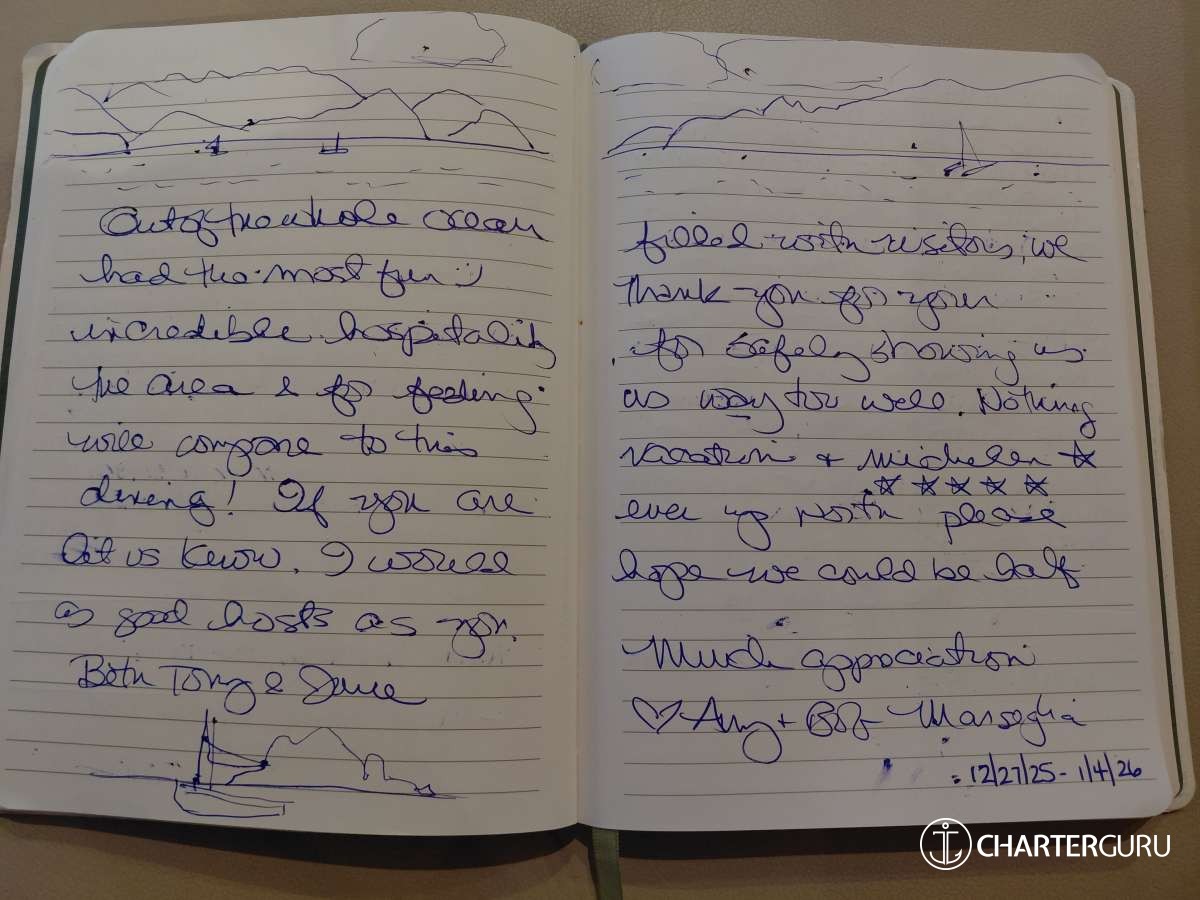 Out of the whole ocean filled with visitors, we
had the most fun :) Thank you for your
incredible hospitality for safely showing us
the area & for feeding us way too well. Nothing
will compare to this vacation & michelen ☆
☆ ☆ ☆ ☆ ☆
dining! If you are ever up north please
let us know. I would hope we could be half
as good hosts as you.
Both Tony &
Much appreciation
♡ Amy + Bob Marseglia
12/27/25 - 1/4/26
CHARTERGURU